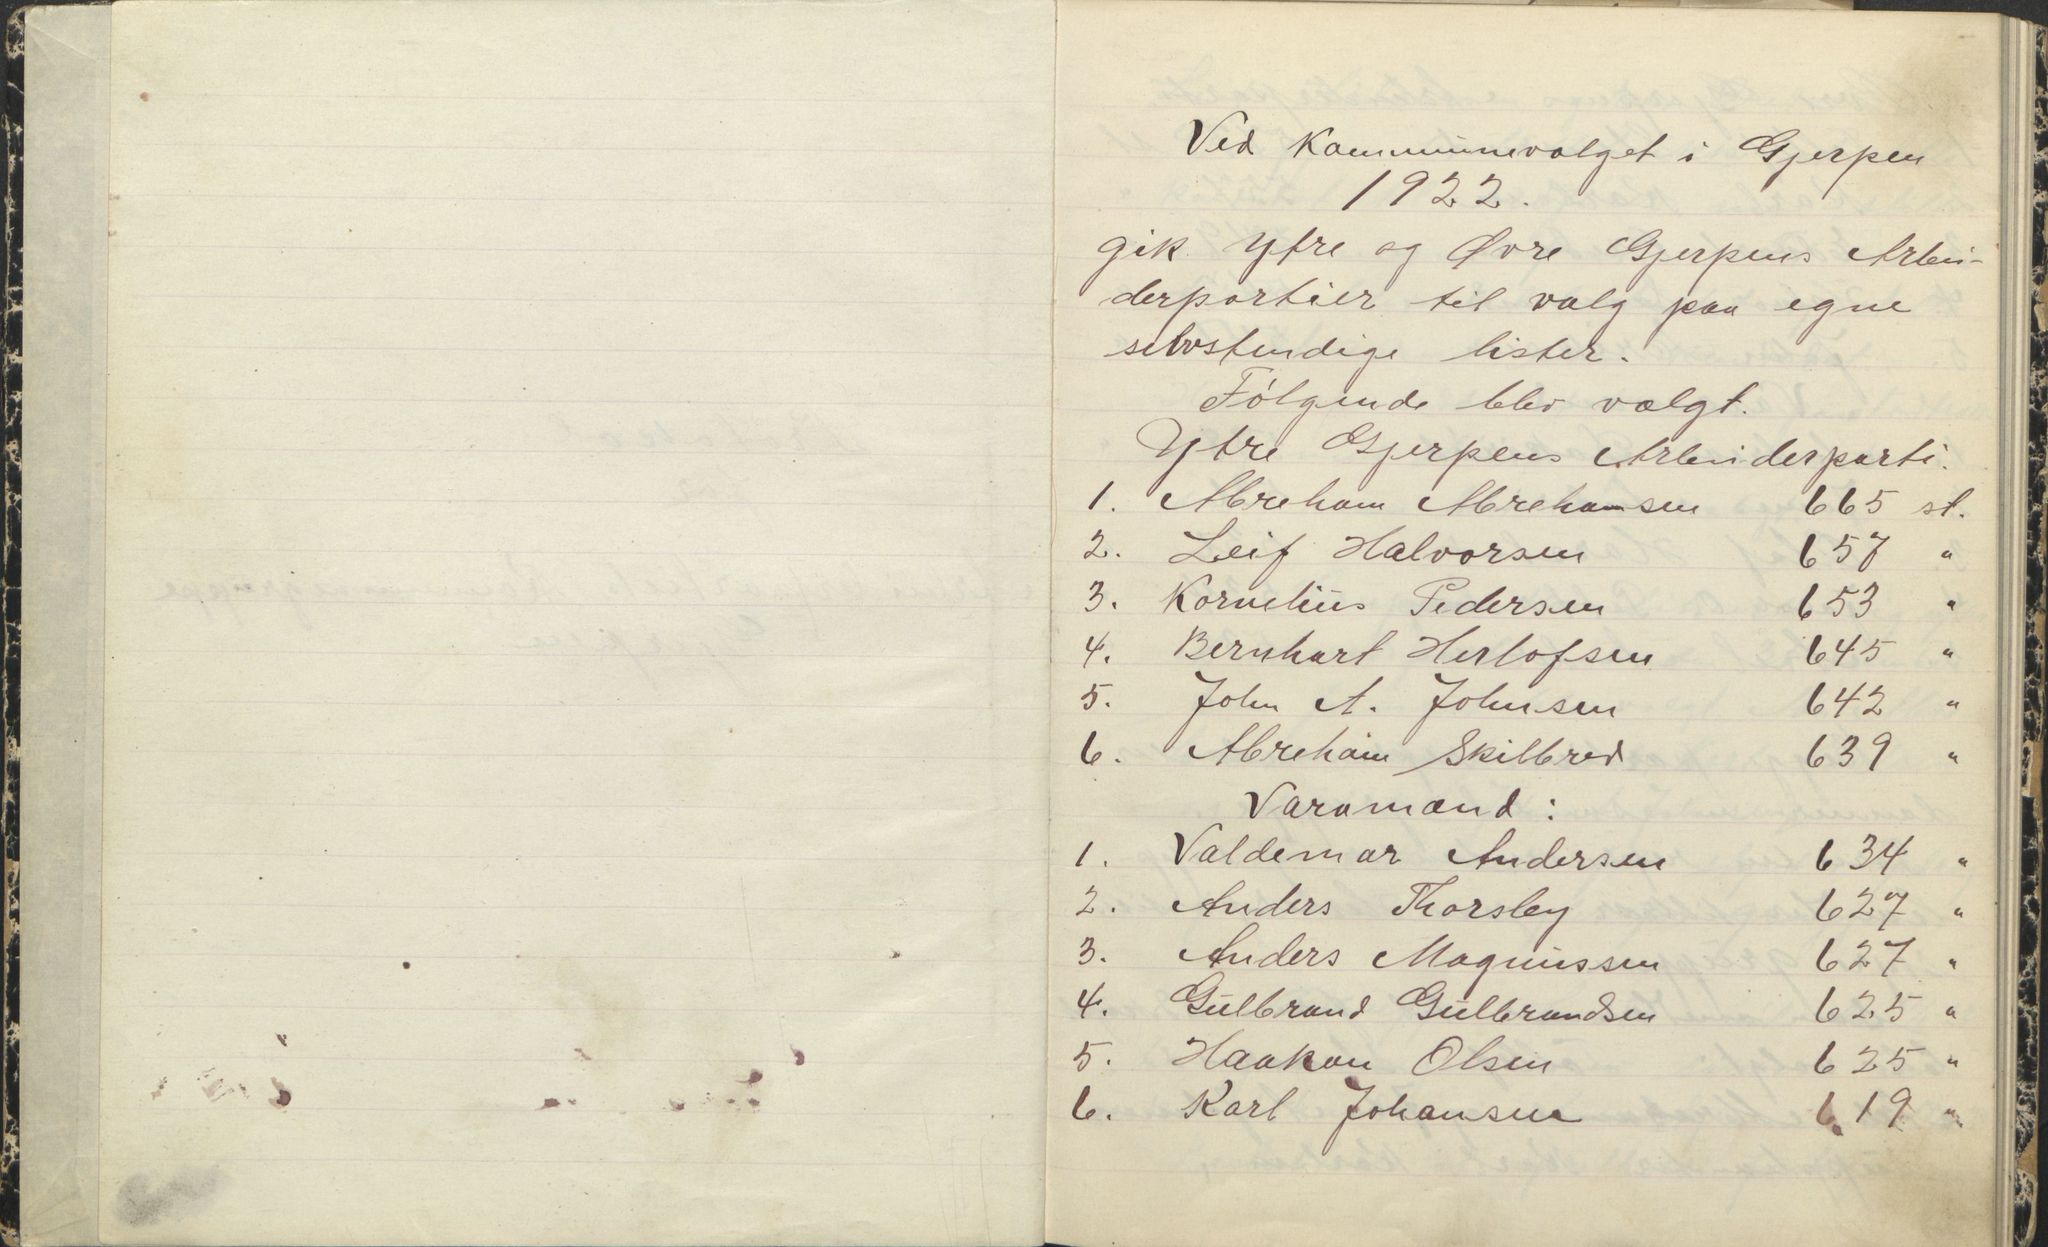 Ved Kommunevalget i Gjerpen
1922.
gik Ytre og Øvre Gjerpens Arbei-
derpartier til valg paa egne
selvstendige lister.
Følgende blev valgt.
Ytre Gjerpens Arbeiderparti.
1. Abreham Abrehamsen 665 st.
2. Leif Halvorsen 657 "
3. Kornelius Pedersen 653 "
4. Bernhart Herlofsen 645 "
5. John A. Johnsen 642 "
6. Abreham Skilbred 639 "
Varamænd:
1. Valdemar Andersen 634 "
2. Anders Thorsby 627 "
3. Anders Magnussen 627 "
4. Gulbrand Gulbrandsen 625 "
5. Haakon Olsen 625 "
6. Karl Johansen 619 "